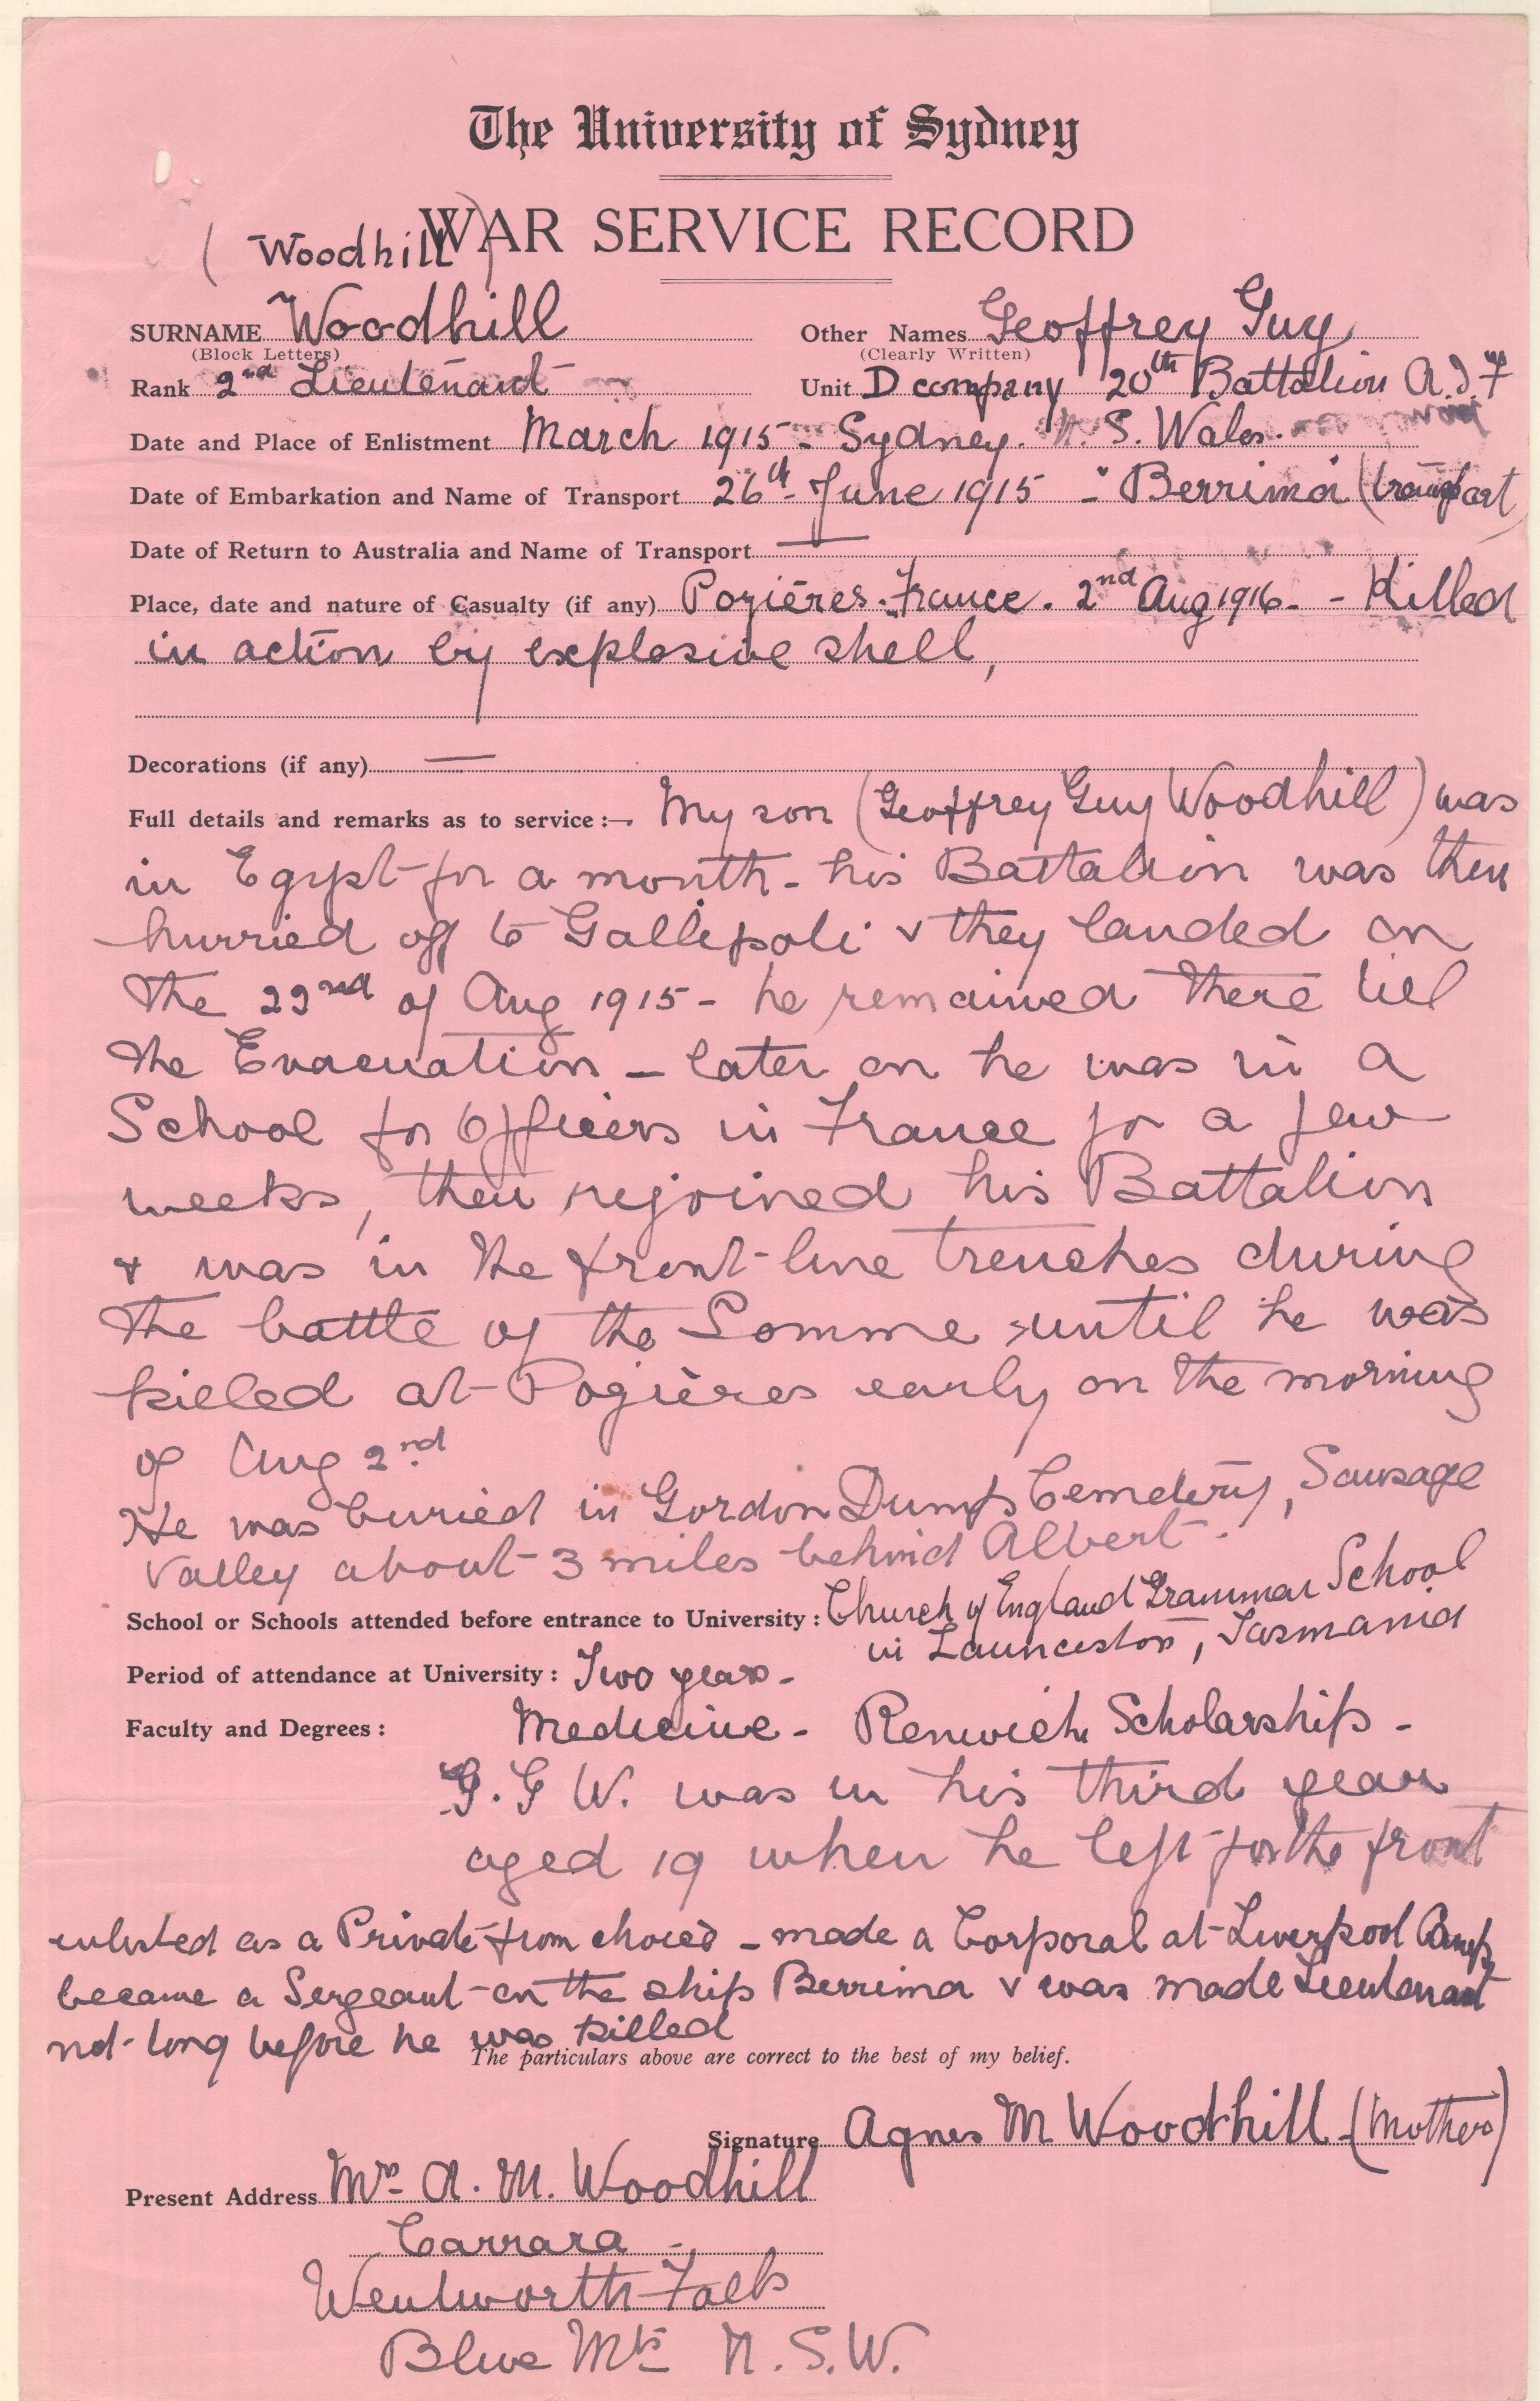 The University of Sydney
WAR SERVICE RECORD
( Woodhill )
SURNAME Woodhill Other Names Geoffrey Guy
(Block Letters) (Clearly Written)
Rank 2nd Lieutenant Unit D company 20th Battalion A.I.F
Date and Place of Enlistment March 1915 - Sydney. N. S. Wales.
Date of Embarkation and Name of Transport 26th June 1915 - Berrima (transport)
Date of Return to Australia and Name of Transport —
Place, date and nature of Casualty (if any) Pozières. France. 2nd Aug 1916 - - Killed
in action by explosive shell,
Decorations (if any) —
Full details and remarks as to service :— My son (Geoffrey Guy Woodhill) was
in Egypt for a month - his Battalion was then
hurried off to Gallipoli & they landed on
the 22nd of Aug 1915 - he remained there till
the Evacuation - later on he was in a
School for Officers in France for a few
weeks, then rejoined his Battalion
& was in the front-line trenches during
the battle of the Somme until he was
killed at Pozières early on the morning
of Aug 2nd
He was buried in Gordon Dump Cemetery, Sausage
Valley about 3 miles behind Albert.
School or Schools attended before entrance to University : Church of England Grammar School
in Launceston, Tasmania
Period of attendance at University : Two years -
Faculty and Degrees : Medicine - Renwick Scholarship -
G. G W. was in his third year
aged 19 when he left for the front
enlisted as a Private from choice - made a Corporal at Liverpool Camp,
became a Sergeant on the ship Berrima & was made Lieutenant
not long before he was killed
The particulars above are correct to the best of my belief.
Signature Agnes M Woodhill - (Mother)
Present Address Mrs A. M. Woodhill
Carrara -
Wentworth Falls
Blue Mts N. S. W.